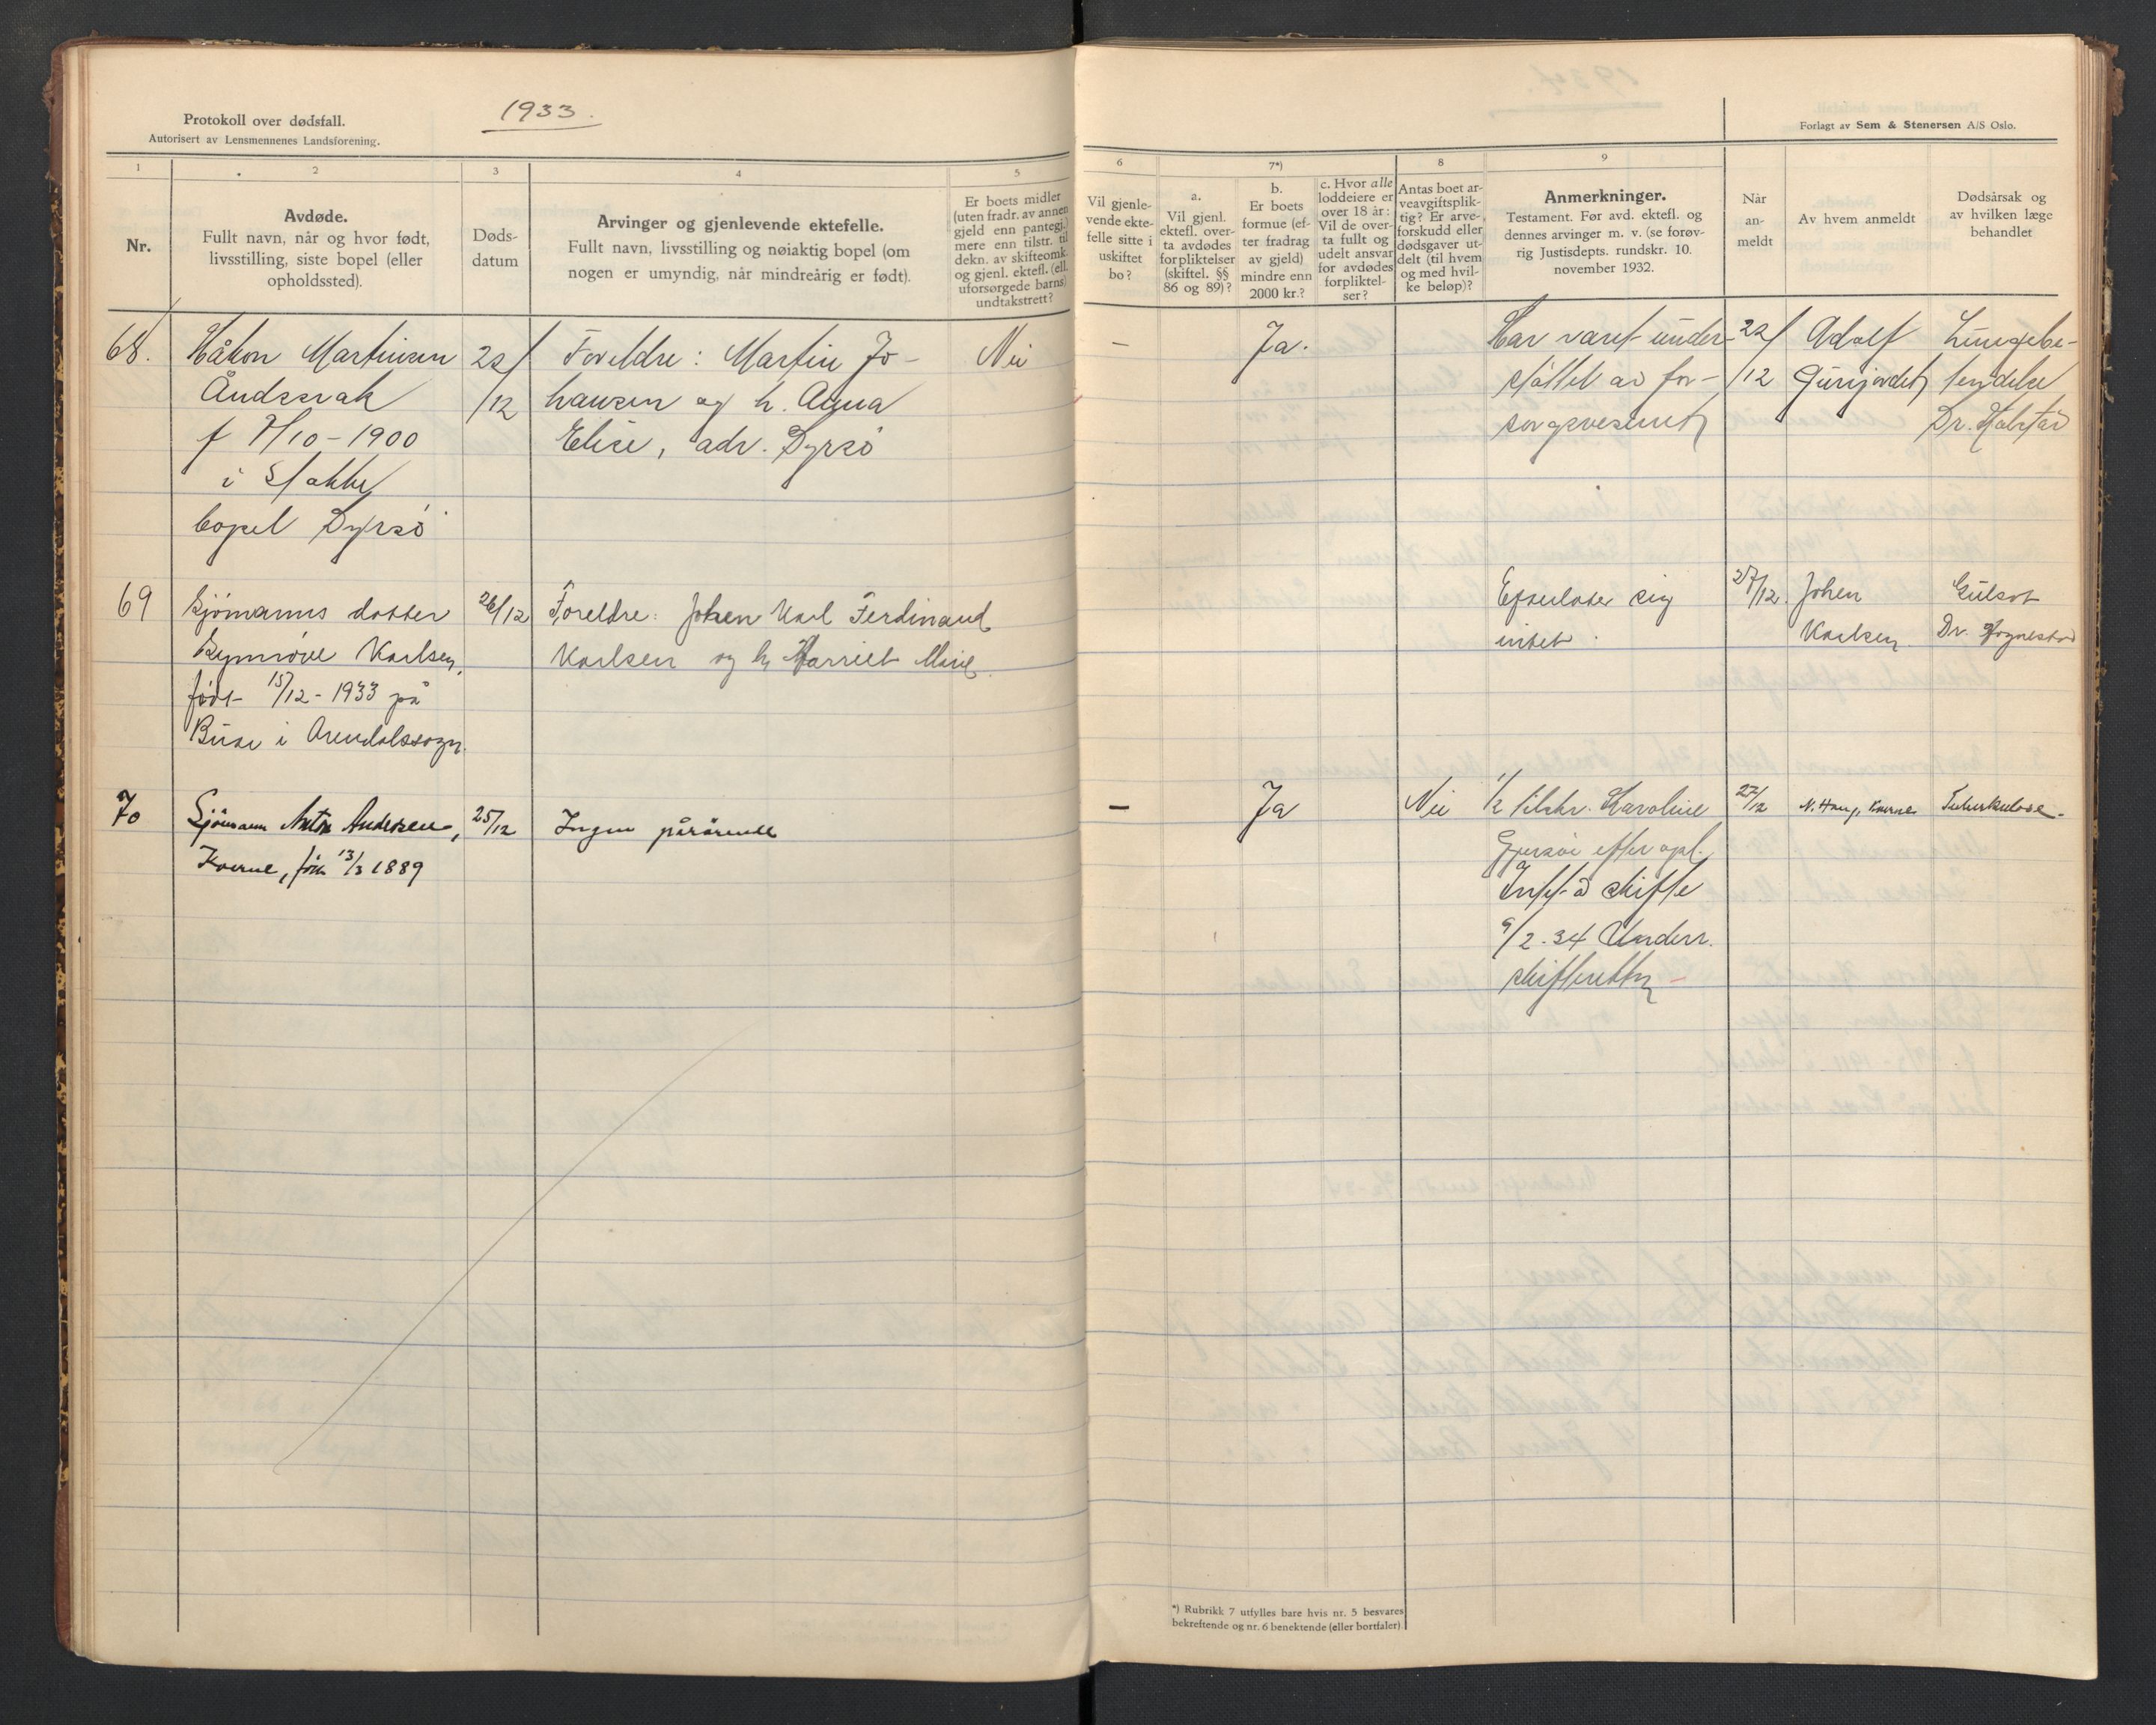 Protokoll over dødsfall.
Autorisert av Lensmennenes Landsforening.
1933.
Forlagt av Sem & Stenersen A/S Oslo.
1
2
3
4
5
6
7*)
8
9
Nr.
Avdøde.
Fullt navn, når og hvor født,
livsstilling, siste bopel (eller
opholdssted).
Døds-
datum
Arvinger og gjenlevende ektefelle.
Fullt navn, livsstilling og nøiaktig bopel (om
nogen er umyndig, når mindreårig er født).
Er boets midler
(uten fradr. av annen
gjeld enn pantegj.)
mere enn tilstr. til
dekn. av skifteomk.
og gjenl. ektefl. (ell.
uforsørgede barns)
undtakstrett?
Vil gjenle-
vende ekte-
felle sitte i
uskiftet
bo?
a.
Vil gjenl.
ektefl. over-
ta avdødes
forpliktelser
(skiftel. §§
86 og 89)?
b.
Er boets
formue (ef-
ter fradrag
av gjeld)
mindre enn
2000 kr.?
c. Hvor alle
loddeiere er
over 18 år:
Vil de over-
ta fullt og
udelt ansvar
for avdødes
forpliktel-
ser?
Antas boet ar-
veavgiftsplik-
tig? Er arve-
forskudd eller
dødsgaver ut-
delt (til hvem
og med hvil-
ke beløp)?
Anmerkninger.
Testament. Før avd. ektefl. og
dennes arvinger m. v. (se forøv-
rig Justisdepts. rundskr. 10.
november 1932.
Når
an-
meldt
Av hvem anmeldt
Dødsårsak og
av hvilken læge
behandlet
68.
Håkon Martinsen
f 7/10-1900
i Stokke
bopel Dyrsö
22/
/12
Foreldre: Martin Jo-
hansen og h. Anna
Elise, adr. Dyrsö
Nei
–
Ja.
Har været under-
støttet av for-
sorgsvesenet
22/
/12
Adolf
Lungebe-
tendelse
Dr.
69
Sjömanns datter
Synnöve Karlsen,
född 15/12-1933 på
Buøi i Arendalssogn.
26/12
Foreldre: Johan Karl Ferdinand
Karlsen og h. Harriet Marie.
Efterlater sig
intet.
27/12.
Johan
Karlsen
Gulsot
Dr. Hognestad
70
Sjömann Anton Andersen,
Kverne, född 13/3 1889
25/12
Ingen pårörende
–
Ja
Nei
1/2 tilskr. Karoline
efter opl.
å skifte
9/2-34 Underr.
skifteretten –
27/12
N. Haug, Kverne
Tuberkulose.
*) Rubrikk 7 utfylles bare hvis nr. 5 besvares
bekreftende og nr. 6 benektende (eller bortfaler)